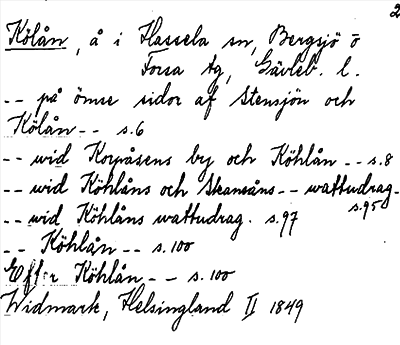 2
Kölån, å i Hassela sn, Bergsjö o
Forsa tg, Gävleb. l.
-- på ömse sidor af Stensjön och
Kölån -- s.6
-- wid Korpåsens by och Köhlån -- s.8
-- wid Köhlåns och Skansåns -- wattudrag-
s.95
-- wid Köhlåns wattudrag. s.97
-- Köhlån -- s.100
Efter Köhlån -- s.100
Widmark, Helsingland II 1849